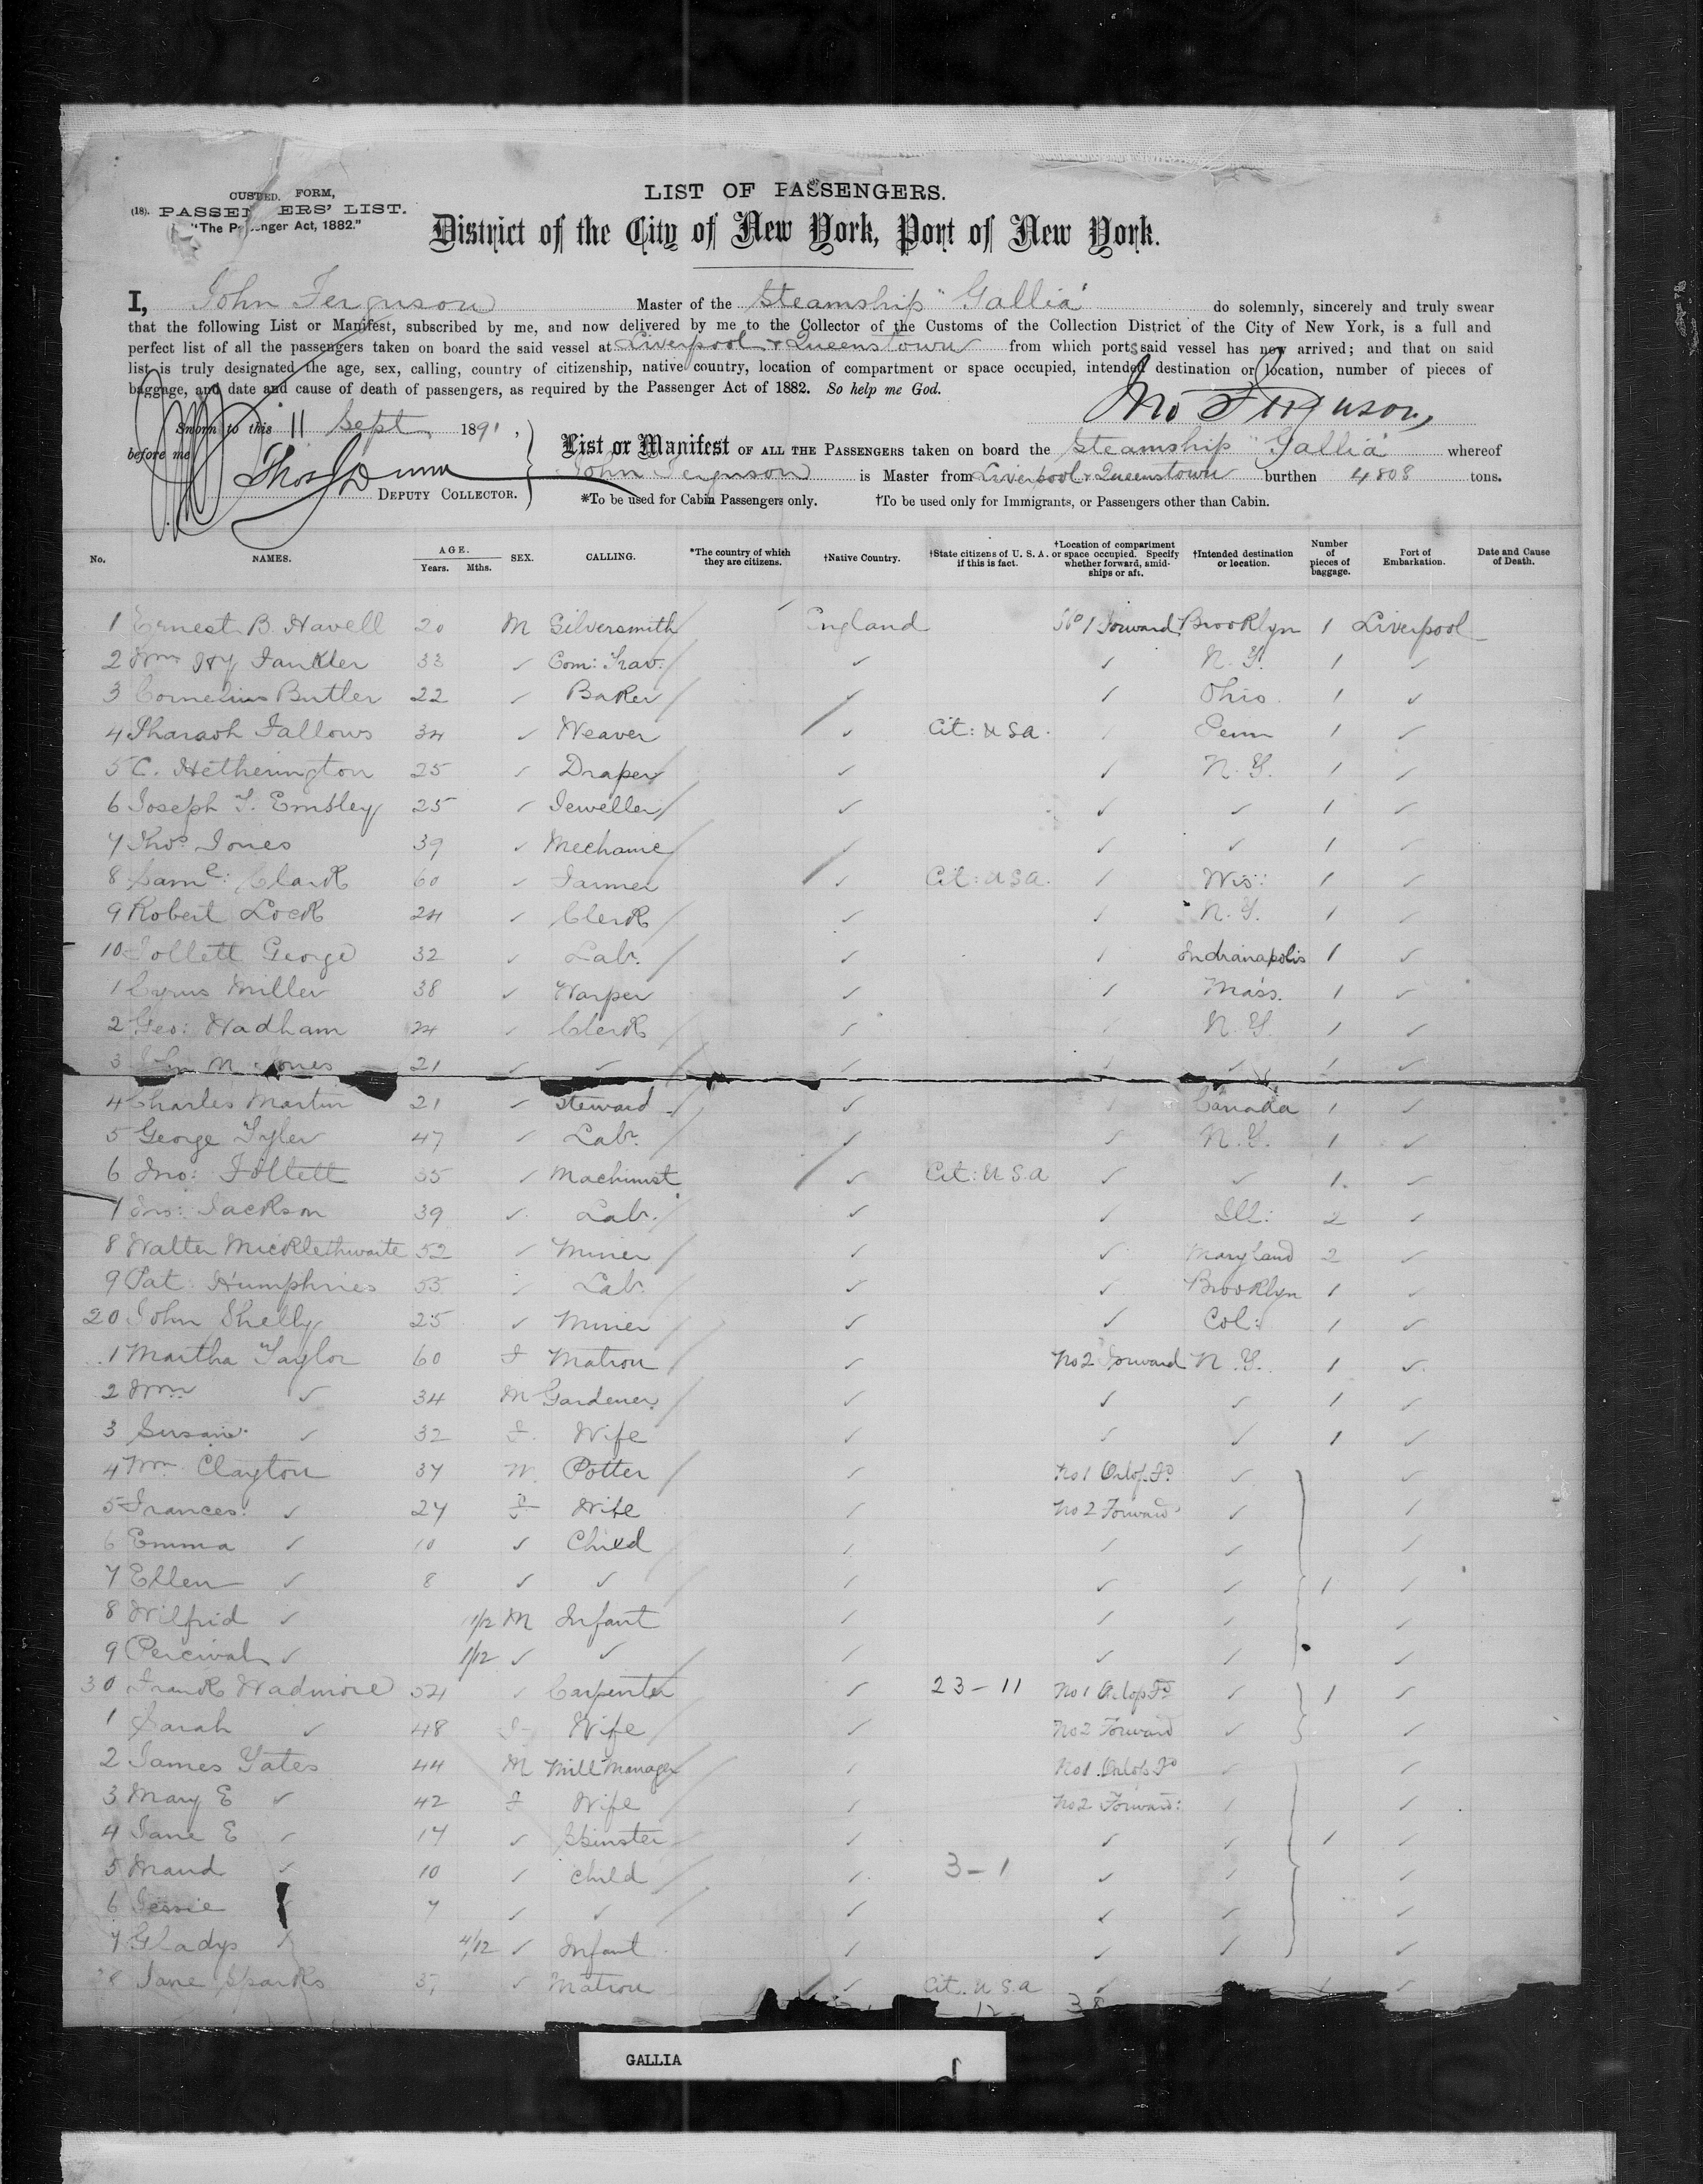 LIST OF PASSENGERS.
CUSTED. FORM,
(18). PASSEN ERS' LIST.
"The P nger Act, 1882."
District of the City of New York, Port of New York.
I, John Ferguson Master of the Steamship "Gallia" do solemnly, sincerely and truly swear
that the following List or Manifest, subscribed by me, and now delivered by me to the Collector of the Customs of the Collection District of the City of New York, is a full and
perfect list of all the passengers taken on board the said vessel at Liverpool & Queenstown from which ports said vessel has now arrived; and that on said
list is truly designated the age, sex, calling, country of citizenship, native country, location of compartment or space occupied, intended destination or location, number of pieces of
baggage, and date and cause of death of passengers, as required by the Passenger Act of 1882. So help me God.
Jno Ferguson,
Sworn to this 11 Sept 1891,
before me
Thos Dunn
DEPUTY COLLECTOR.
List or Manifest OF ALL THE PASSENGERS taken on board the Steamship "Gallia" whereof
John Ferguson is Master from Liverpool & Queenstown burthen 4808 tons.
*To be used for Cabin Passengers only. †To be used only for Immigrants, or Passengers other than Cabin.
No. NAMES. AGE. Years. Mths. SEX. CALLING. *The country of which they are citizens. †Native Country. †State citizens of U. S. A. if this is fact. †Location of compartment or space occupied. Specify whether forward, amidships or aft. †Intended destination or location. Number of pieces of baggage. Port of Embarkation. Date and Cause of Death.
1 Ernest B. Havell 20 M Silversmith England No 1 Forward Brooklyn 1 Liverpool
2 Wm Hy Fankler 33 ✓ Com: Trav. ✓ ✓ N.Y. 1 ✓
3 Cornelius Butler 22 ✓ Baker ✓ ✓ Ohio 1 ✓
4 Pharaoh Fallows 34 ✓ Weaver ✓ Cit: USA. ✓ Penn 1 ✓
5 C. Hetherington 25 ✓ Draper ✓ ✓ N.Y. 1 ✓
6 Joseph T. Embley 25 ✓ Jeweller ✓ ✓ ✓ 1 ✓
7 Thos Jones 39 ✓ Mechanic ✓ ✓ ✓ 1 ✓
8 Saml: Clark 60 ✓ Farmer ✓ Cit: USA. ✓ Wis: 1 ✓
9 Robert Lock 24 ✓ Clerk ✓ ✓ N.Y. 1 ✓
10 Follett George 32 ✓ Labr. ✓ ✓ Indianapolis 1 ✓
1 Cyrus Miller 38 ✓ Warper ✓ ✓ Mass. 1 ✓
2 Geo: Wadham 24 ✓ Clerk ✓ ✓ N.Y. 1 ✓
3 John M Jones 21 ✓ ✓ ✓ ✓ ✓ 1 ✓
4 Charles Martin 21 ✓ Steward ✓ ✓ Canada 1 ✓
5 George Tyler 47 ✓ Labr. ✓ ✓ N.Y. 1 ✓
6 Jno: Follett 35 ✓ Machinist ✓ Cit: USA ✓ ✓ 1 ✓
7 Jno: Jackson 39 ✓ Labr. ✓ ✓ Ill: 2 ✓
8 Walter Micklethwaite 52 ✓ Miner ✓ ✓ Maryland 2 ✓
9 Pat. Humphries 55 ✓ Labr. ✓ ✓ Brooklyn 1 ✓
20 John Shelly 25 ✓ Miner ✓ ✓ Col: 1 ✓
1 Martha Taylor 60 F Matron ✓ No 2 Forward N.Y. 1 ✓
2 Wm ✓ 34 M Gardener ✓ ✓ ✓ 1 ✓
3 Susan ✓ 32 F Wife ✓ ✓ ✓ 1 ✓
4 Wm Clayton 37 M Potter ✓ No 1 Orlop Fd ✓ ✓
5 Frances ✓ 27 F Wife ✓ No 2 Forward ✓ ✓
6 Emma ✓ 10 ✓ Child ✓ ✓ ✓ ✓
7 Ellen ✓ 8 ✓ ✓ ✓ ✓ ✓ 1 ✓
8 Wilfrid ✓ 11/12 M Infant ✓ ✓ ✓ ✓
9 Percival ✓ 1/12 ✓ ✓ ✓ ✓ ✓ ✓
30 Frank Wadmore 54 ✓ Carpenter ✓ 23-11 No 1 Orlop Fd ✓ 1 ✓
1 Sarah ✓ 48 F Wife ✓ No 2 Forward ✓ ✓
2 James Yates 44 M Mill Manager ✓ No 1 Orlop Fd ✓ ✓
3 Mary E ✓ 42 F Wife ✓ No 2 Forward: ✓ ✓
4 Jane E ✓ 17 ✓ Spinster ✓ ✓ ✓ 1 ✓
5 Maud ✓ 10 ✓ Child ✓ 3-1 ✓ ✓ ✓
6 Jessie ✓ 7 ✓ ✓ ✓ ✓ ✓ ✓
7 Gladys ✓ 4/12 ✓ Infant ✓ ✓ ✓ ✓
38 Jane Sparks 37 ✓ Matron ✓ Cit. USA ✓ 1 ✓
12 38
GALLIA